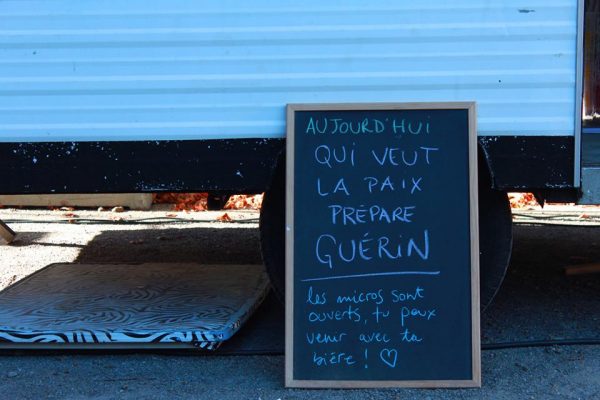 AUJOURD'HUI
QUI VEUT
LA PAIX
PRÉPARE
GUÉRIN
les micros sont
ouverts, tu peux
venir avec ta
bière ! ♡